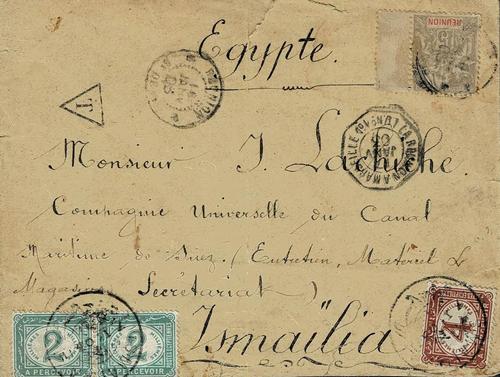 Egypte.
REUNION
15
REUNION
T
LA REUNION A MARSEILLE
JANV
05
Monsieur J. Lachiche.
Compagnie Universelle du Canal
Maritime de Suez. (Entretien, Matériel &
Magasins Secrétariat)
Ismaïlia
2
A PERCEVOIR
2
A PERCEVOIR
4